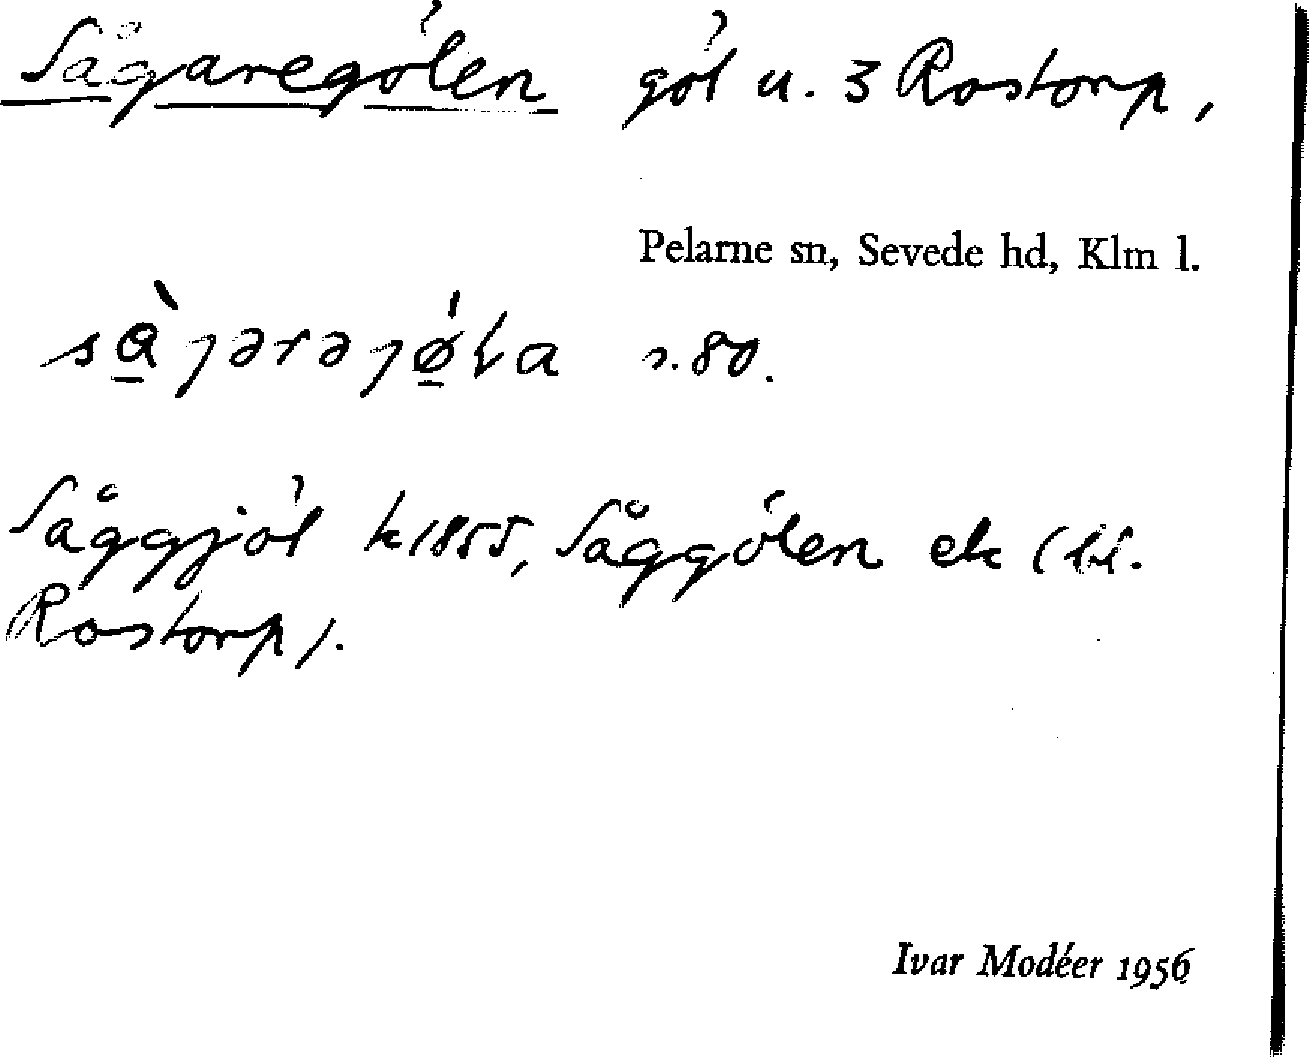 Sågarególen gól u. 3 Rostorp,
Pelarne sn, Sevede hd, Klm l.
s. 80.
Såggjól k 1855, Såggólen ek (til.
Rostorp).
Ivar Modéer 1956